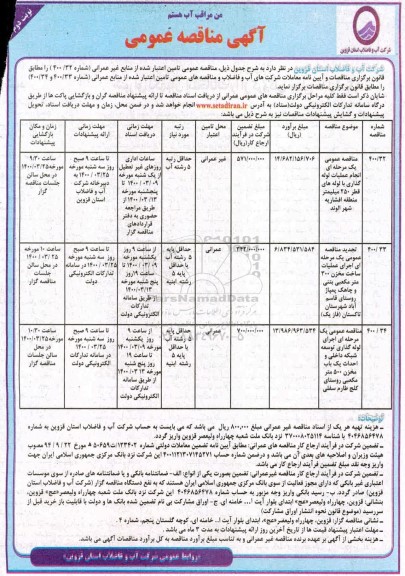 نوبت دوم
من مراقب آب هستم
آگهی مناقصه عمومی
شرکت آب و فاضلاب استان قزوین
شرکت آب و فاضلاب استان قزوین در نظر دارد به شرح جدول ذیل، مناقصه عمومی تامین اعتبار شده از منابع غیر عمرانی (شماره ۴۰۰/۳۲) را مطابق
قانون برگزاری مناقصات و آیین نامه معاملات شرکت های آب و فاضلاب و مناقصه های عمومی تامین اعتبار شده از منابع عمرانی (شماره ۴۰۰/۳۳ و ۴۰۰/۳۴)
را مطابق قانون برگزاری مناقصات برگزار نماید.
شایان ذکر است فقط کلیه مراحل برگزاری مناقصه های عمومی عمرانی از دریافت اسناد مناقصه تا ارائه پیشنهاد مناقصه گران و بازگشایی پاکت ها از طریق
درگاه سامانه تدارکات الکترونیکی دولت(ستاد) به آدرس www.setadiran.ir انجام خواهد شد و در ضمن محل، زمان و مهلت دریافت اسناد، تحویل
پیشنهادات و گشایش پیشنهادات مناقصات نیز به شرح ذیل می باشد:
شماره مناقصه | موضوع مناقصه | مبلغ برآورد (ریال) | مبلغ تضمین شرکت در فرآیند ارجاع کار(ریال) | محل تامین اعتبار | رتبه مورد نیاز | مهلت زمانی دریافت اسناد | مهلت زمانی ارائه پیشنهادات | زمان و مکان بازگشایی پیشنهادات
۴۰۰/۳۲ | مناقصه عمومی یک مرحله ای انجام عملیات لوله گذاری با لوله های قطر ۲۵۰ میلیمتر منطقه افشاریه شهر الوند | ۱۴/۶۸۲/۱۵۶/۷۰۶ | ۵۷۱/۰۰۰/۰۰۰ | غیر عمرانی | حداقل پایه ۵ رشته آب | ساعات اداری روزهای غیر تعطیل از یک شنبه مورخ ۱۴۰۰/۰۳/۰۹ تا پنجشنبه مورخه ۱۴۰۰/۰۳/۱۳ از طریق مراجعه حضوری به دفتر قراردادهای مناقصه گزار | تا ساعت ۹ صبح روز سه شنبه مورخه ۱۴۰۰/۰۳/۲۵ به دبیرخانه شرکت آب و فاضلاب استان قزوین | ۹:۳۰ ساعت مورخه۱۴۰۰/۰۳/۲۵ در محل سالن جلسات مناقصه گزار
۴۰۰/۳۳ | تجدید مناقصه عمومی یک مرحله ای اجرای عملیات ساخت مخزن ۳۰۰ متر مکعبی بتنی و چاهک پمپاژ روستای قاسم آباد شهرستان تاکستان (فاز یک) | ۶/۸۳۴/۵۳۱/۵۸۴ | ۳۴۲/۰۰۰/۰۰۰ | عمرانی | حداقل پایه ۵ رشته آب یا حداقل پایه ۵ رشته ابنیه | از ساعت ۹ روز یکشنبه مورخه ۱۴۰۰/۰۳/۰۹ تا ساعت ۱۹ روز پنج شنبه مورخه ۱۴۰۰/۰۳/۱۳ از طریق سامانه تدارکات الکترونیکی دولت | تا ساعت ۹ صبح روز سه شنبه مورخه ۱۴۰۰/۰۳/۲۵ در سامانه تدارکات الکترونیکی دولت | ساعت ۱۰ مورخه ۱۴۰۰/۰۳/۲۵ در محل سالن جلسات مناقصه گزار
۴۰۰/۳۴ | مناقصه عمومی یک مرحله ای اجرای لوله گذاری توسعه شبکه داخلی و احداث یک باب مخزن ۵۰۰ متر مکعبی روستای کلج طارم سفلی | ۱۳/۹۸۶/۹۶۳/۵۳۴ | ۷۰۰/۰۰۰/۰۰۰ | عمرانی | حداقل پایه ۵ رشته آب یا حداقل پایه ۵ رشته ابنیه | از ساعت ۹ روز یکشنبه مورخه ۱۴۰۰/۰۳/۰۹ تا ساعت ۱۹ روز پنج شنبه مورخه ۱۴۰۰/۰۳/۱۳ از طریق سامانه تدارکات الکترونیکی دولت | تا ساعت ۹ صبح روز سه شنبه مورخه ۱۴۰۰/۰۳/۲۵ در سامانه تدارکات الکترونیکی دولت | ۱۰:۳۰ ساعت مورخه۱۴۰۰/۰۳/۲۵ در محل سالن جلسات مناقصه گزار
توضیحات:
ـ هزینه تهیه هر یک از اسناد مناقصه غیر عمرانی مبلغ ۸۰۰,۰۰۰ ریال می باشد که می بایست به حساب شرکت آب و فاضلاب استان قزوین به شماره
۴۰۴۶۸۵۶۴۷۸ با شناسه ۳۷۰۰۰۸۰۲۵۱۱۴ نزد بانک ملت شعبه چهارراه ولیعصر قزوین واریز گردد.
ـ تضمین شرکت در فرآیند ارجاع کار مناقصه های عمرانی؛ مطابق آیین نامه تضمین معاملات دولتی شماره ۱۲۳۴۰۲/ت۵۰۶۵۹ه مورخ ۹۴/۹/۲۲ مصوب
هیئت وزیران و اصلاحیه های بعدی آن می باشد
واریز وجه نقد مبلغ تضمین فرآیند ارجاع کار می باشد.
ـ تضمین شرکت در فرآیند ارجاع کار مناقصه غیرعمرانی؛ تضمین بصورت یکی از انواع: الف- ضمانتنامه بانکی و یا ضمانتنامه های صادره از سوی موسسات
اعتباری غیر بانکی که دارای مجوز فعالیت از سوی بانک مرکزی جمهوری اسلامی ایران هستند که به نفع دستگاه مناقصه گزار (شرکت آب و فاضلاب استان
ـ نشانی مناقصه گزار: قزوین، چهارراه ولیعصر(عج)، ابتدای بلوار آیت ا... خامنه ای، کوچه گلستان پنجم، شماره ۴.
ـ مهلت اعتبار پیشنهاد قیمت ها از تاریخ آخرین روز ارائه پیشنهادات به مدت ۳ ماه می باشد.
ـ هزینه بخشی از آگهی بر عهده برنده مناقصه غیر عمرانی و به تناسب مبلغ برآورد مناقصه به کل برآورد مناقصات آگهی می باشد.
روابط عمومی شرکت آب و فاضلاب استان قزوین